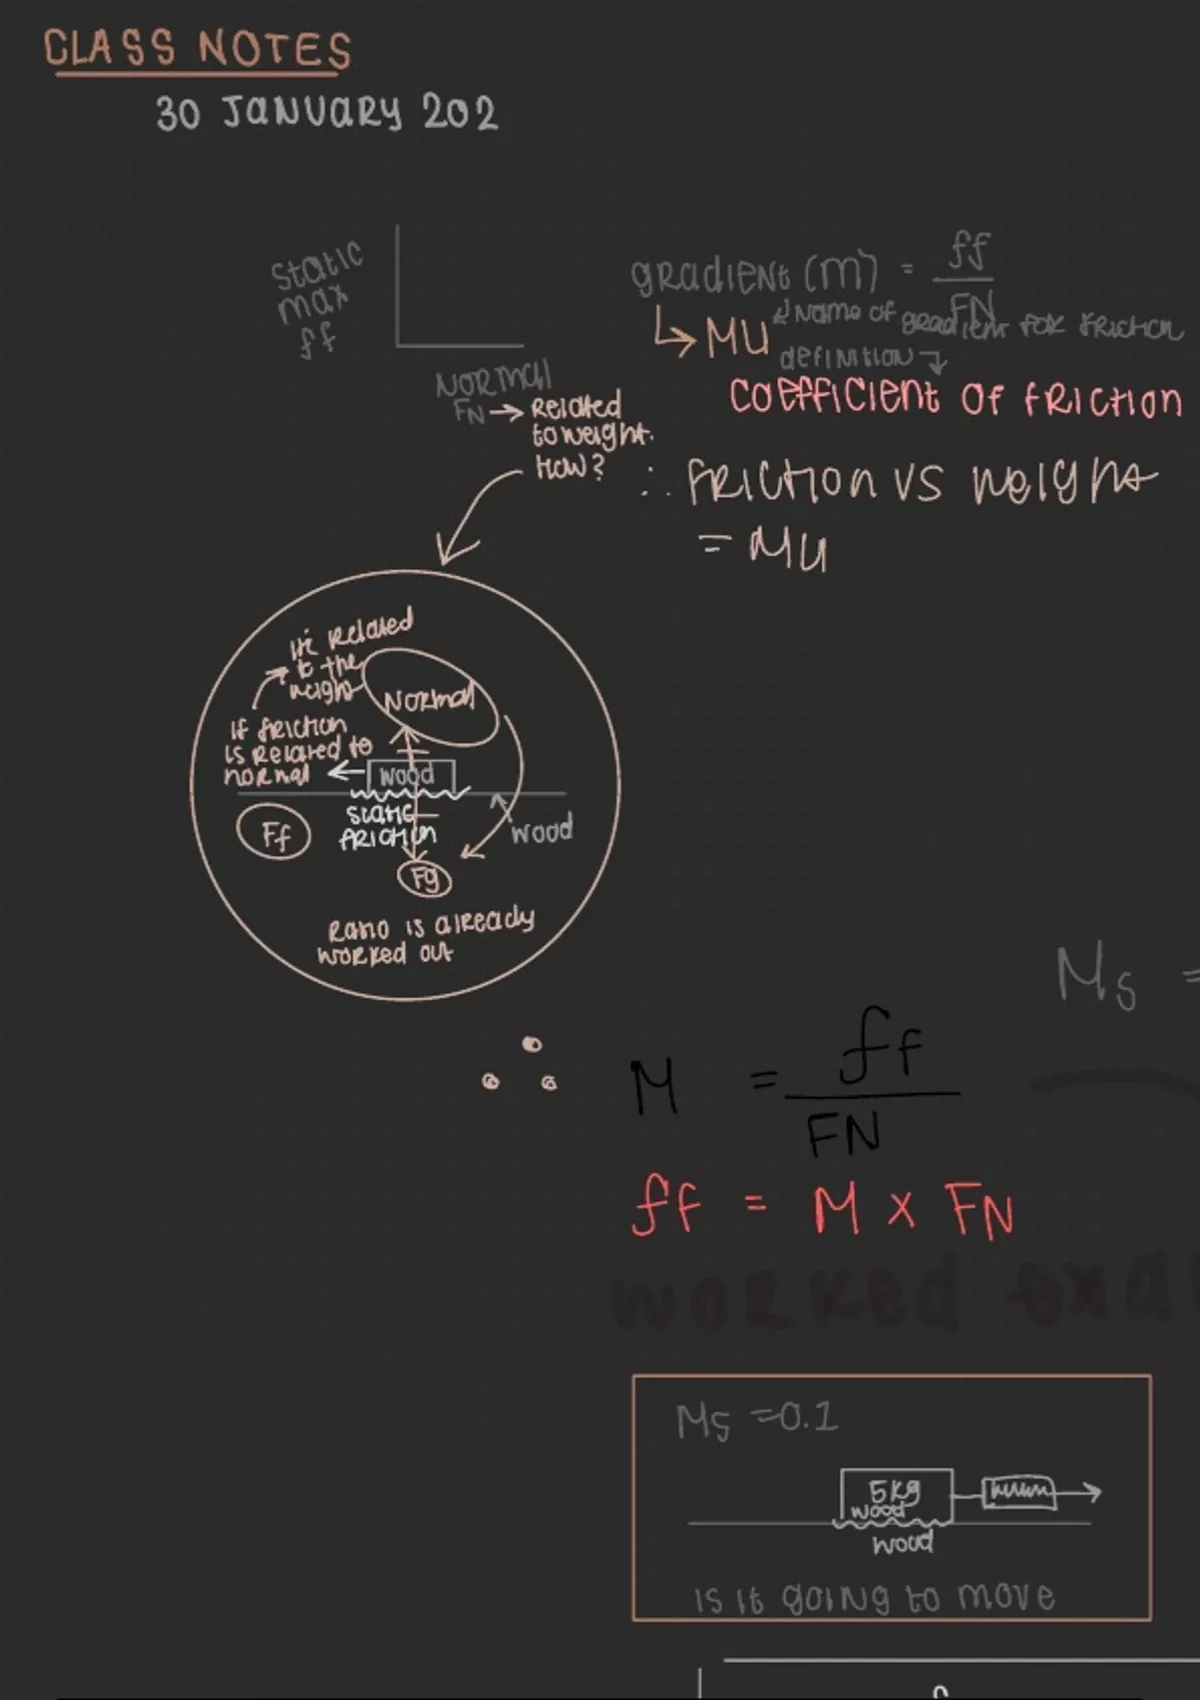 CLASS NOTES
30 JANUARY 202
static
max
ff
NORMAL
FN → Related
to weight.
HOW?
gradient (m) = ff
FN
↳ MU
Name of gradient for friction
definition
coefficient of friction
∴ friction vs weight
= MU
related
to the
weight
Normal
if friction
is related to
normal
wood
static
friction
wood
Ff
Fg
Ratio is already
worked out
Ms =
∴ M = ff
FN
ff = M x FN
worked exa
Ms = 0.1
5kg
wood
wood
is it going to move